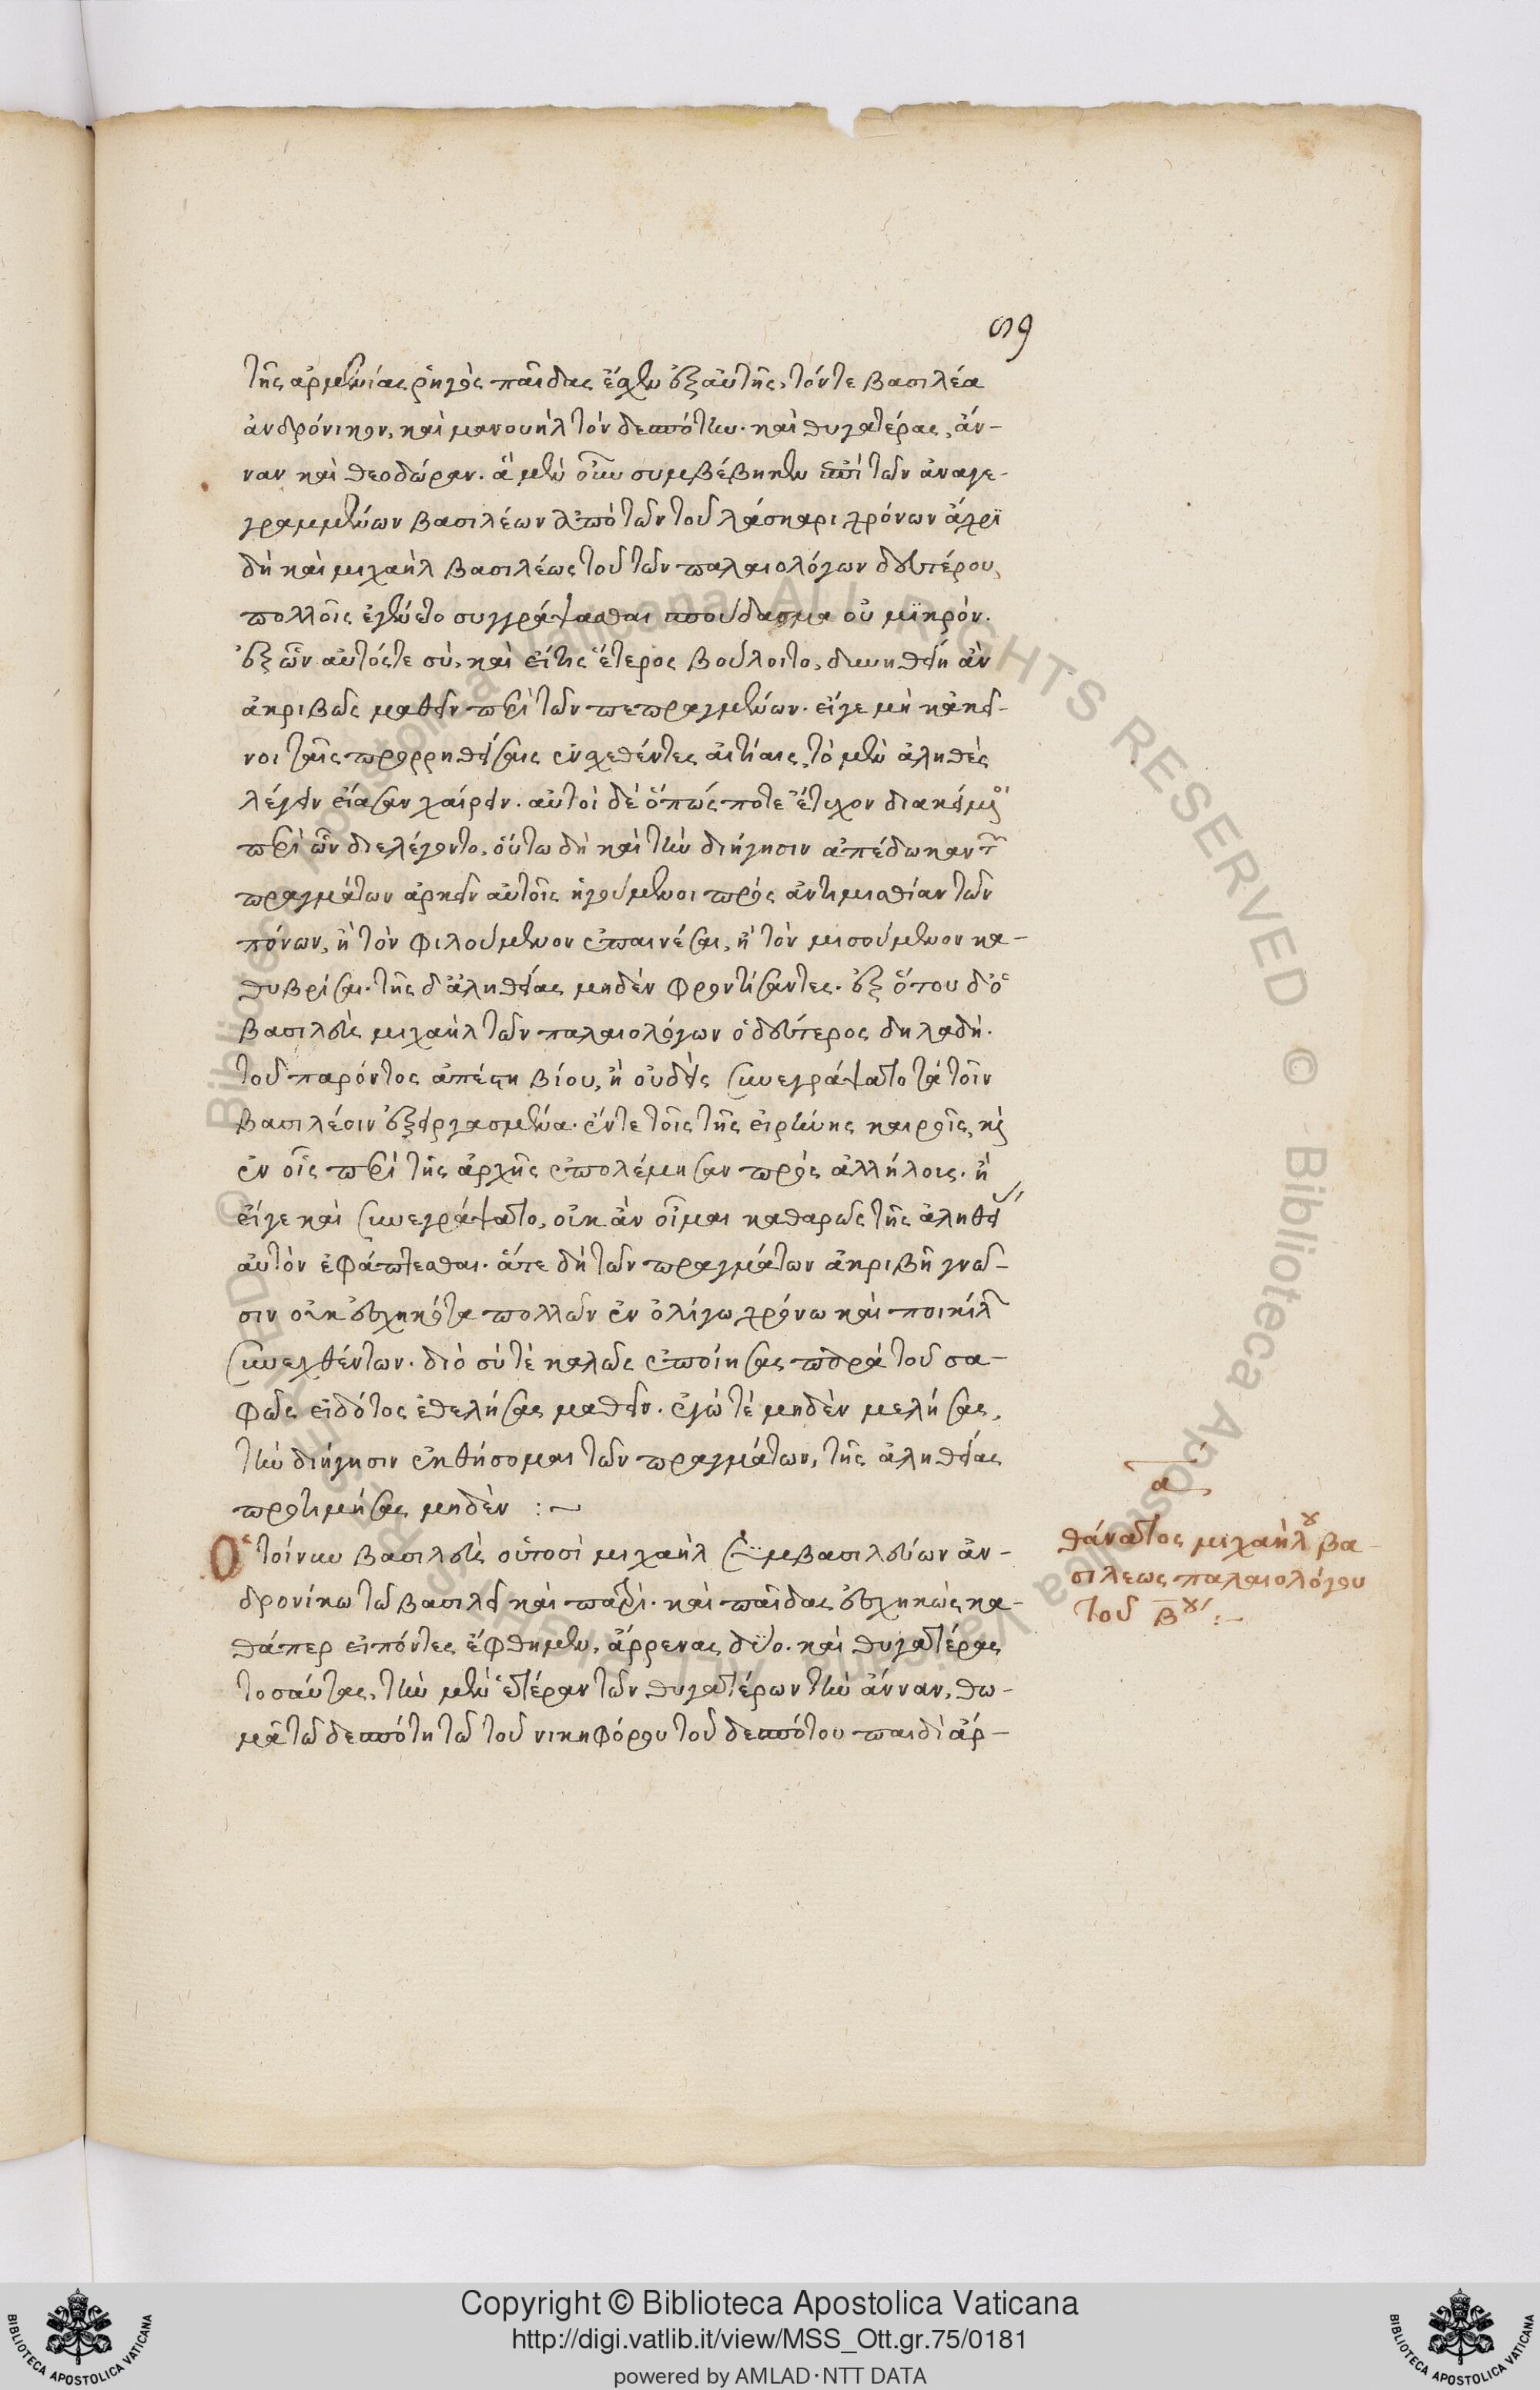 59
τῆς ἀρμενίας ῥηγὸς παῖδας ἔσχεν ἐξ αὐτῆς, τόν τε βασιλέα
ἀνδρόνικον, καὶ μανουὴλ τὸν δεσπότην· καὶ θυγατέρας, ἄν-
ναν καὶ θεοδώραν. ἃ μὲν οὖν συμβέβηκεν ἐπὶ τῶν ἀναγε-
γραμμένων βασιλέων ἀπὸ τῶν τοῦ λάσκαρι χρόνων ἄχρϊ
δὴ καὶ μιχαὴλ βασιλέως τοῦ τῶν παλαιολόγων δευτέρου,
πολλοῖς ἐγένετο συγγράψασθαι σπούδασμα οὐ μϊκρόν.
ἐξ ὧν αὐτός τε σύ, καὶ εἴ τις ἕτερος βούλοιτο, δυνηθείη ἂν
ἀκριβῶς μαθεῖν περὶ τῶν πεπραγμένων. εἴγε μὴ κἀκεῖ-
νοι ταῖς προρρηθείσαις ἐνσχεθέντες αἰτίαις, τὸ μὲν ἀληθὲς
λέγειν εἴασαν χαίρειν. αὐτοὶ δὲ ὅπως ποτε ἔτυχον διακείμενοι
περὶ ὧν διελέγοντο, οὕτω δὴ καὶ τὴν διήγησιν ἀπέδωκαν τῶν
πραγμάτων ἀρκεῖν αὐτοῖς ἡγούμενοι πρὸς ἀντιμισθίαν τῶν
πόνων, ἢ τὸν φιλούμενον ἐπαινέσαι, ἢ τὸν μισούμενον κα-
θυβρίσαι. τῆς δ' ἀληθείας μηδὲν φροντίσαντες. ἐξ ὅπου δ' ὁ
βασιλεὺς μιχαὴλ τῶν παλαιολόγων ὁ δεύτερος δηλαδή.
τοῦ παρόντος ἀπέστη βίου, ἢ οὐδεὶς συνεγράψατο τὰ τοῖν
βασιλέοιν ἐξειργασμένα. ἔν τε τοῖς τῆς εἰρήνης καιροῖς, καὶ
ἐν οἷς περὶ τῆς ἀρχῆς ἐπολέμησαν πρὸς ἀλλήλοις. ἢ
εἴγε καὶ συνεγράψατο, οὐκ ἂν οἶμαι καθαρῶς τῆς ἀληθείας
αὐτὸν ἐφάπτεσθαι. ἅτε δὴ τῶν πραγμάτων ἀκριβῆ γνῶ-
σιν οὐκ ἐσχηκότα πολλῶν ἐν ὀλίγω χρόνω καὶ ποικίλων
συνελθέντων. διὸ σύ τε καλῶς ἐποίησας παρὰ τοῦ σα-
φῶς εἰδότος ἐθελήσας μαθεῖν. ἐγώ τε μηδὲν μελήσας,
τὴν διήγησιν ἐκθήσομαι τῶν πραγμάτων, τῆς ἀληθείας
προτιμήσας μηδέν :~
Ὁ τοίνυν βασιλεὺς οὑτοσὶ μιχαὴλ συμβασιλεύων ἀν-
δρονίκω τῶ βασιλεῖ καὶ πατρί. καὶ παῖδας ἐσχηκὼς κα-
θάπερ εἰπόντες ἔφθημεν, ἄρρενας δύο. καὶ θυγατέρας
τοσαύτας, τὴν μὲν ἑτέραν τῶν θυγατέρων τὴν ἄνναν, θω-
μᾶ τῶ δεσπότη τῶ τοῦ νικηφόρου τοῦ δεσπότου παιδὶ ἁρ-
α
θάνατος μιχαὴλ βα-
σιλεως παλαιολόγου
τοῦ βου :~
Copyright © Biblioteca Apostolica Vaticana
http://digi.vatlib.it/view/MSS_Ott.gr.75/0181
powered by AMLAD·NTT DATA
BIBLIOTECA APOSTOLICA VATICANA
BIBLIOTECA APOSTOLICA VATICANA
© Biblioteca Apostolica Vaticana ALL RIGHTS RESERVED
© Biblioteca Apostolica Vaticana ALL RIGHTS RESERVED